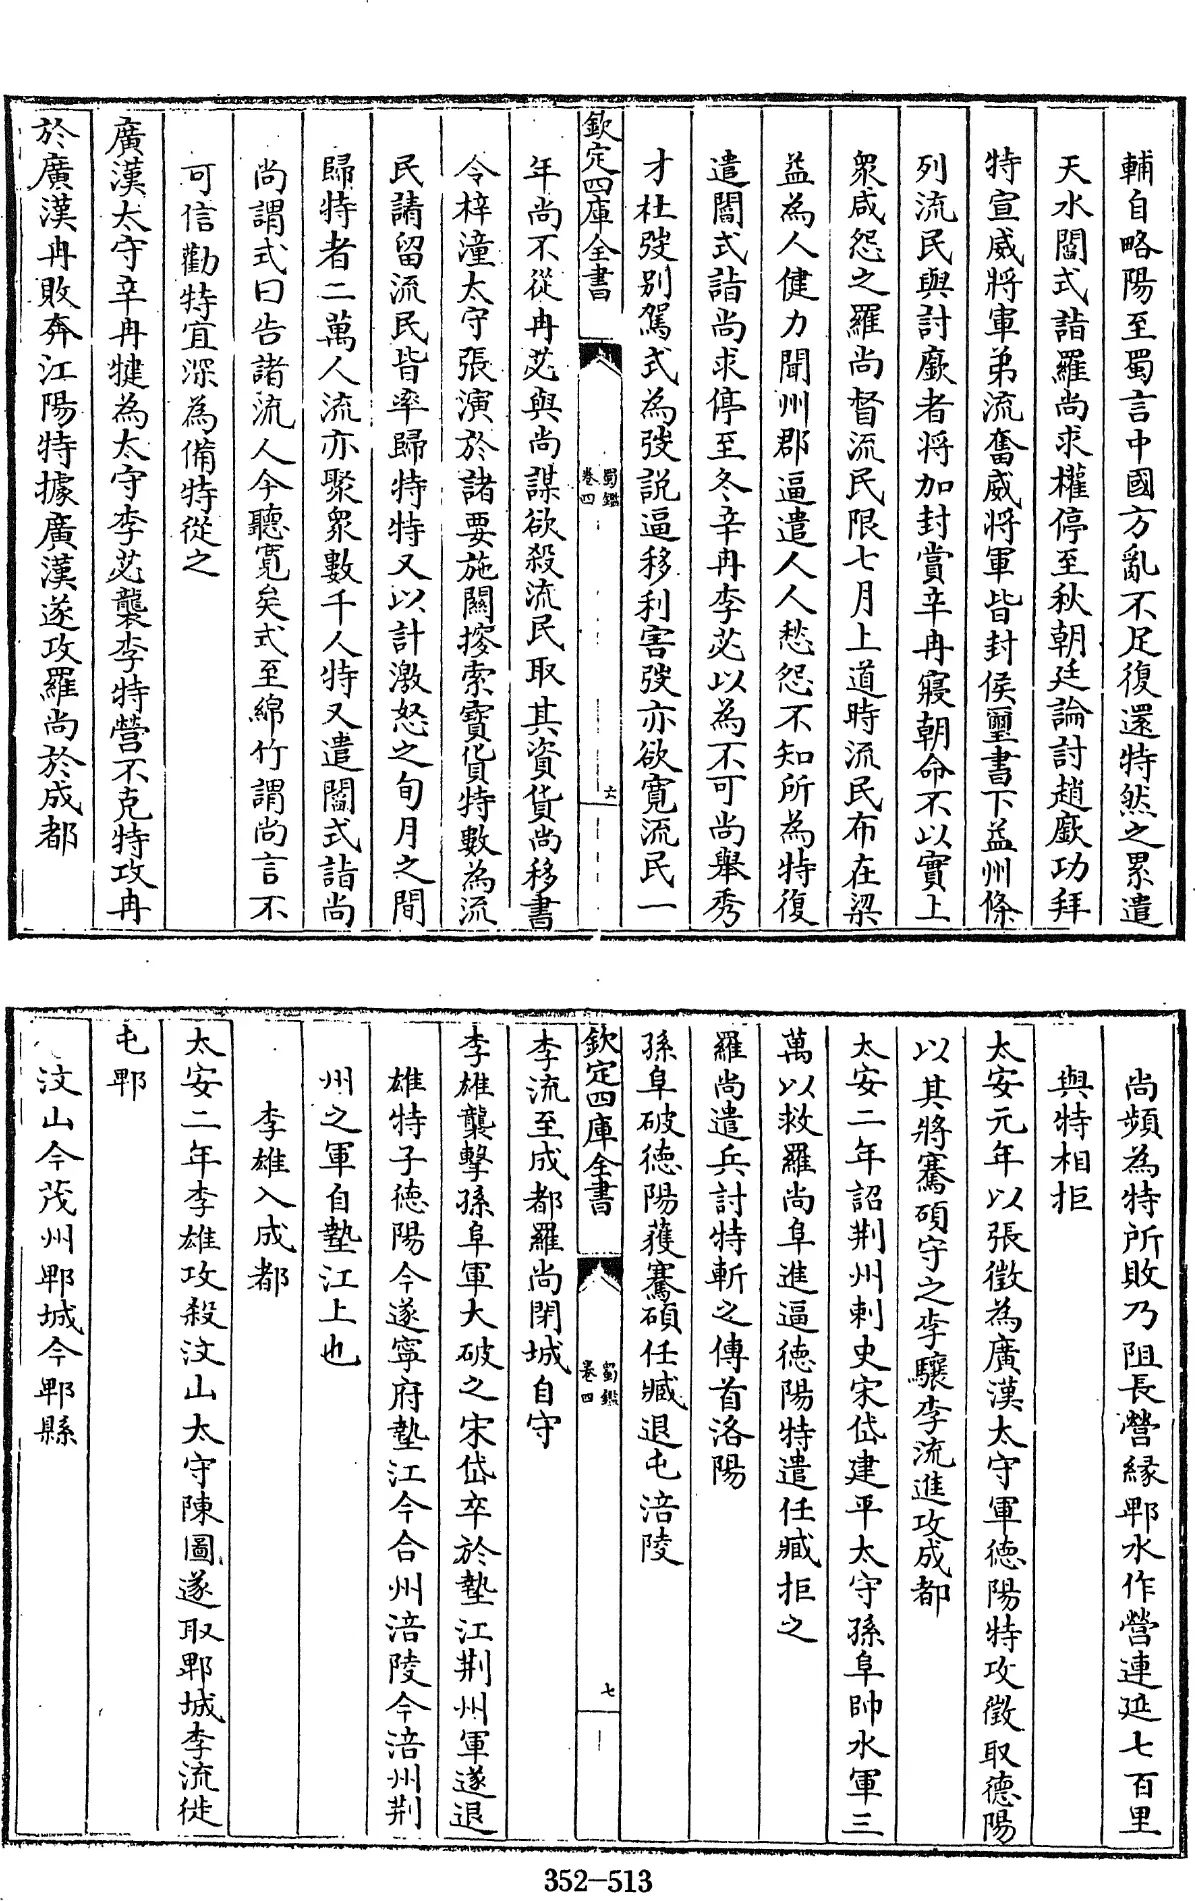 輔自略陽至蜀言中國方亂不足復還特然之累遣
天水閻式詣羅尚求權停至秋朝廷論討趙廞功拜
特宣威將軍弟流奮威將軍皆封侯璽書下益州條
列流民與討廞者將加封賞辛冉寢朝命不以實上
衆咸怨之羅尚督流民限七月上道時流民布在梁
益為人傭力聞州郡逼遣人人愁怨不知所為特復
遣閻式詣尚求停至冬辛冉李苾以為不可尚舉秀
才杜弢别駕式為弢説逼移利害弢亦欲寛流民一
欽定四庫全書
蜀鑑
卷四
六
年尚不從冉苾與尚謀欲殺流民取其資貨尚移書
令梓潼太守張演於諸要施關搜索寶貨特數為流
民請留流民皆率歸特特又以計激怒之旬月之間
歸特者二萬人流亦聚衆數千人特又遣閻式詣尚
尚謂式曰告諸流人今聽寛矣式至綿竹謂尚言不
可信勸特宜深為備特從之
廣漢太守辛冉犍為太守李苾襲李特營不克特攻冉
於廣漢冉敗奔江陽特據廣漢遂攻羅尚於成都
尚頻為特所敗乃阻長營緣郫水作營連延七百里
與特相拒
太安元年以張徵為廣漢太守軍德陽特攻徵取德陽
以其將騫碩守之李驤李流進攻成都
太安二年詔荆州刺史宋岱建平太守孫阜帥水軍三
萬以救羅尚阜進逼德陽特遣任臧拒之
羅尚遣兵討特斬之傳首洛陽
孫阜破德陽獲騫碩任臧退屯涪陵
欽定四庫全書
蜀鑑
卷四
七
李流至成都羅尚閉城自守
李雄襲擊孫阜軍大破之宋岱卒於墊江荆州軍遂退
雄特子德陽今遂寧府墊江今合州涪陵今涪州荆
州之軍自墊江上也
李雄入成都
太安二年李雄攻殺汶山太守陳圖遂取郫城李流徙
屯郫
汶山今茂州郫城今郫縣
352-513